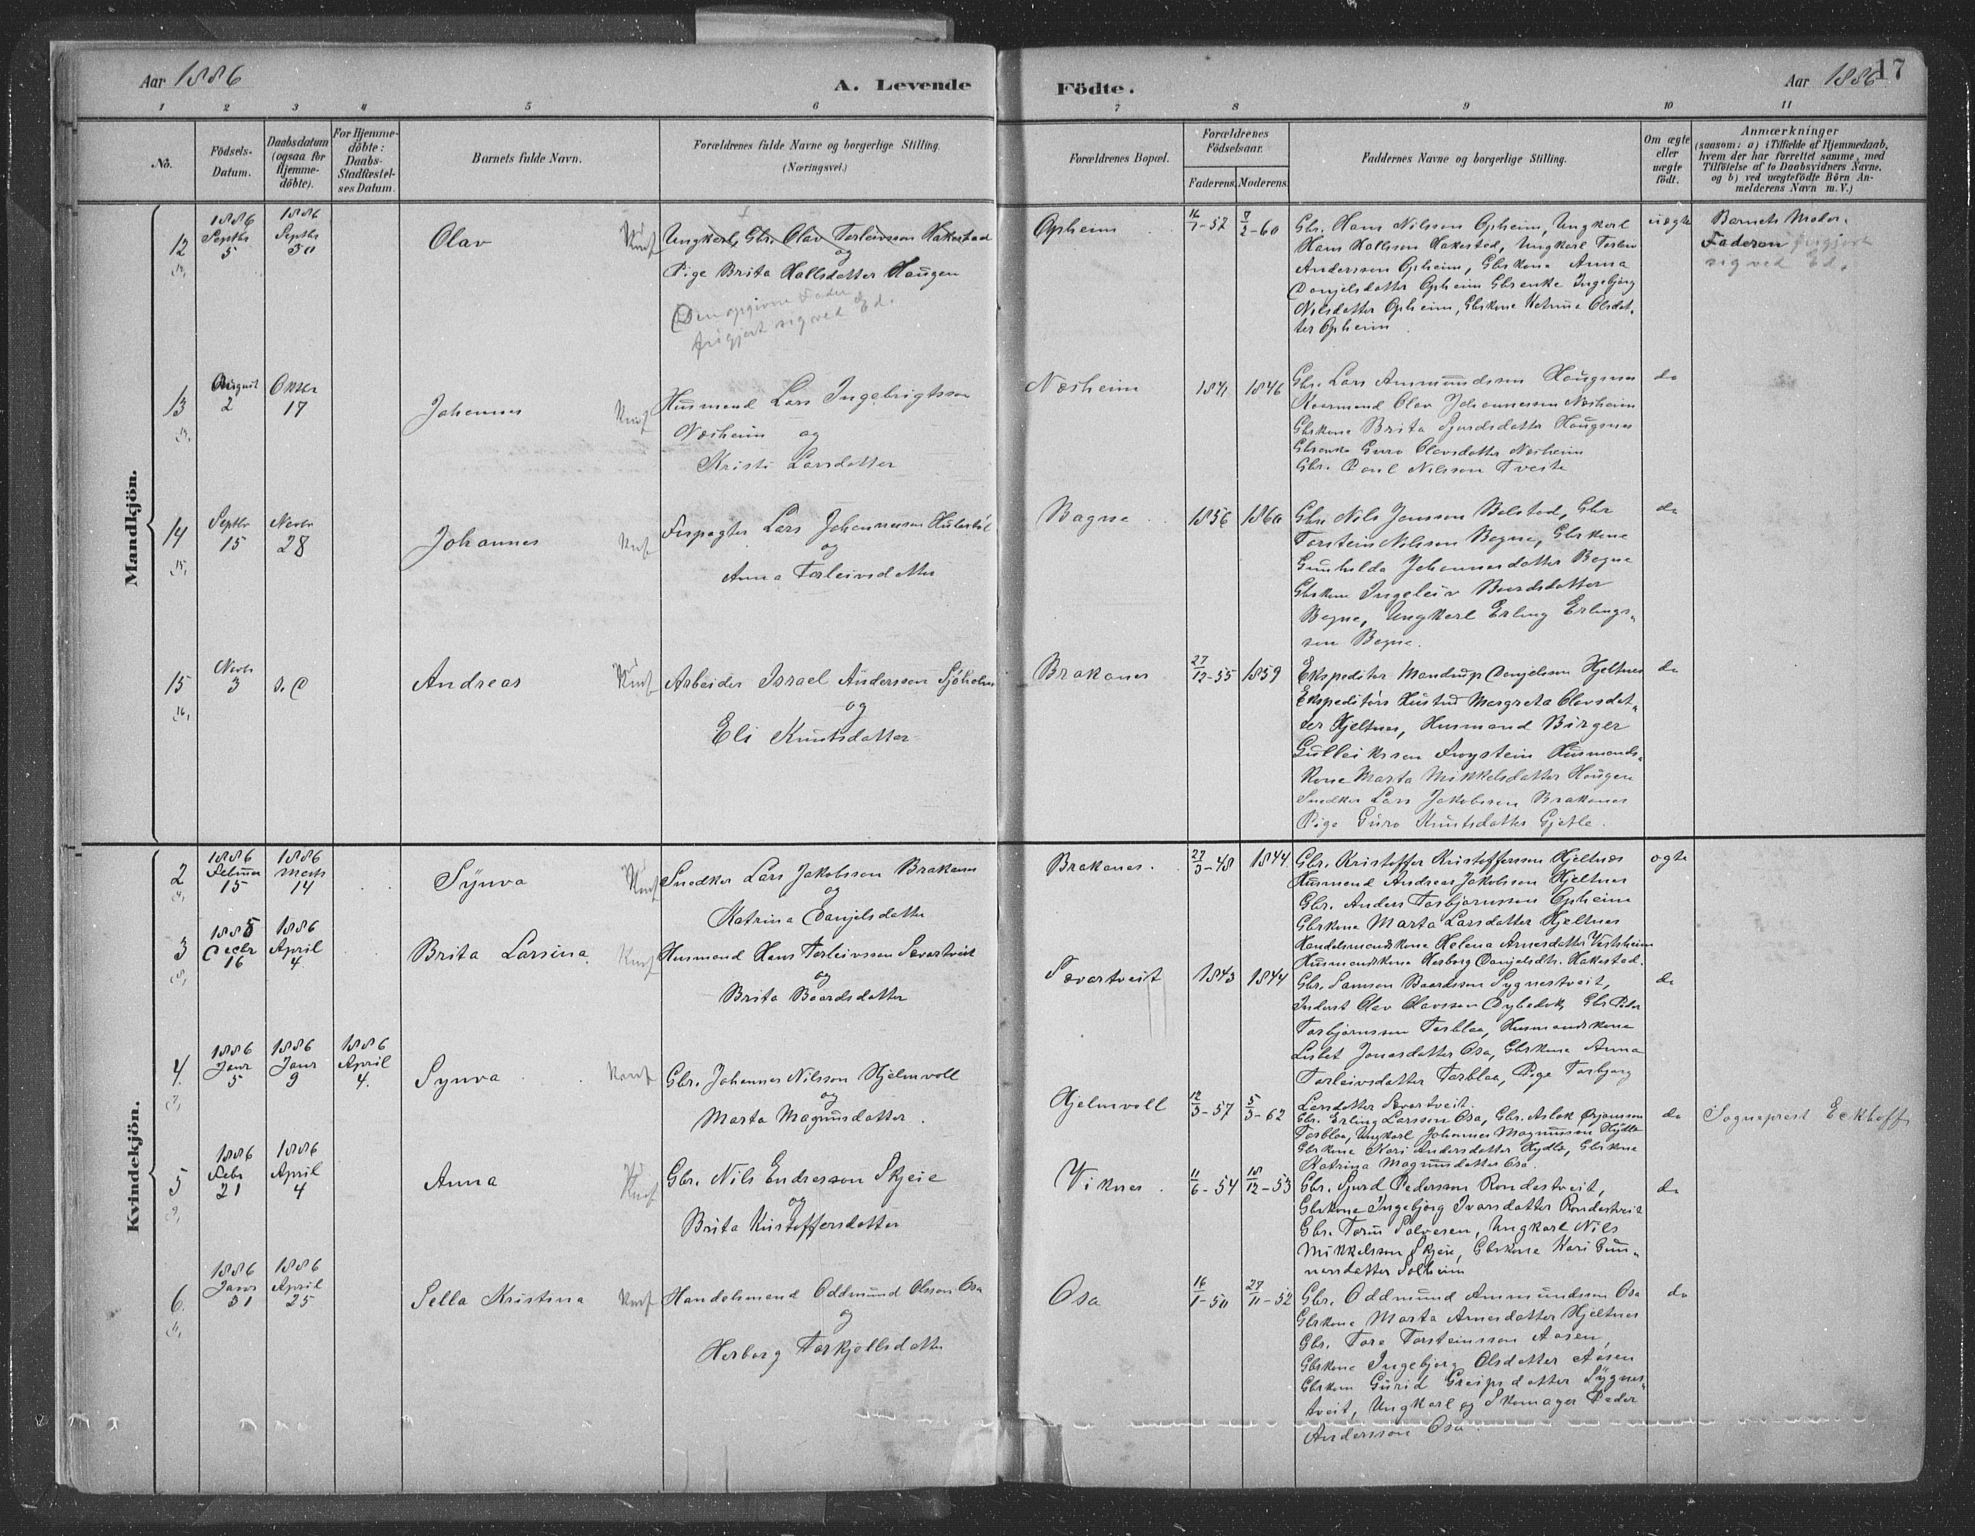 Aar 1886
A. Levende
Födte.
Aar 1886
17
1 2 3 4 5 6 7 8 9 10 11
No.
Födsels-Datum.
Daabsdatum (ogsaa for Hjemme-döbte).
For Hjemme-döbte: Daabs-Stadfæstel-ses Datum.
Barnets fulde Navn.
Forældrenes fulde Navne og borgerlige Stilling.
(Næringsvei.)
Forældrenes Bopæl.
Forældrenes Födselsaar.
Faderens. Moderens.
Faddernes Navne og borgerlige Stilling.
Om ægte eller uægte födt.
Anmærkninger
(saasom: a) i Tilfælde af Hjemmedaab,
hvem der har forrettet samme, med
Tilföielse af to Daabsvidners Navne,
og b) ved uægtefödte Börn An-
melderens Navn m. V.)
Mandkjön.
12
1886 Septbr 5
1886 Septbr 30
Olav
Ungkarl, Gbr. Olav Torleivsson Hakestad
og
Pige Brita Hallsdatter Haugen
(Den opgivne Fader
frigjort sig ved Ed.
Opheim
16/7-52
8/2-60
Gbr. Hans Nilsson Opheim, Ungkarl
Hans Hallsson Hakestad, Ungkarl Torleiv
Andersson Opheim, Gbrkone Anna
Danjelsdatter Opheim Gbrenke Ingebjörg
Nilsdatter Opheim, Gbrkone Katrina Olsdat-
ter Opheim
uægte
Barnets Moder.
Faderen frigjort
sig ved Ed.
13
August 2
Oktbr 17
Johannes
Husmand Lars Ingebrigtsson
Næsheim og
Kristi Larsdatter
Næsheim
1841
1846
Gbr. Lars Ammundsson Haugsnes
Kaarmand Olav Johannesson Næsheim
Gbrkone Brita Sjurdsdatter Haugsnes
Gbrenke Guro Olavsdatter Næsheim
Gbr. Paul Nilsson Tveito
do
14
Septbr 15
Novbr 28
Johannes
Lars Johannesson
og
Anna Torleivsdatter
Bagne
1856
1860
Gbr Nils Jonsson Bolstad, Gbr
Torstein Nilsson Bagne, Gbrkone
Gunhilda Johannesdatter Bagne
Gbrkone Ingeleiv Baardsdatter
Bagne, Ungkarl Erling Erlings-
son Bagne.
do
15
Novbr 3
Andreas
Arbeider Israel Andersson Sjöholm
og
Eli Knutsdatter
Brakanes
27/12-55
1859
Ekspeditör Mandrup Danjelsson Hjeltnes
Ekspeditörs Hustru Margreta Olavsdat-
ter Hjeltnes, Husmand Birger
Gulleiksson Froystein Husmands-
kone Marta Mikkelsdatter Haugen
Snedker Lars Jakobsson Brakanes
Pige Guro Knutsdatter Gjetle.
do
Kvindekjön.
2
1886 Februar 15
1886 Marts 14
Synva
Snedker Lars Jakobsson Brakanes
og
Katrina Danjelsdatter
Brakanes.
27/3-48
1844
Gbr. Kristoffer Kristoffersson Hjeltnes
Husmand Andreas Jakobsson Hjeltnes
Gbr. Anders Torbjörnsson Opheim
Gbrkone Marta Larsdatter Hjeltnes
Handelsmandskone Helena Arnesdatter Vestrheim
Husmandskone Herborg Danjelsdtr. Hakestad.
ægte
3
1885 Decbr 16
1886 April 4
Brita Larsina
Husmand Hans Torleivsson Sævartveit
og
Brita Baardsdatter
Sævartveit
1843
1844
Gbr. Samson Baardsson Sygnestveit,
Inderst Olav Olavsson Gbr Peder
Torbjörnsson Torblaa, Husmandskone
Lisbet Jonasdatter Osa, Gbrkone Anna
Torleivsdatter Torblaa, Pige Torbjörg
Larsdatter Sævartveit.
do
4.
1886 Janr 5
1886 Janr 9
1886 April 4.
Synva
Gbr. Johannes Nilsson Hjelmvoll
og
Marta Magnusdatter.
Hjelmvoll
12/3-57
5/3-62
Gbr. Erling Larsson Osa, Gbr. Aslak Örjansson
Torblaa, Ungkarl Johannes Magnusson Hydle
Gbrkone Kari Andersdatter Hydle, Gbrkone
Katrina Magnusdatter Osa.
do
Sogneprest Eckhoff
5
1886 Febr 21
1886 April 4
Anna
Gbr. Nils Endresson Skjeie
og
Brita Kristoffersdatter
Viknes.
11/6-54
18/12-53
Gbr. Sjurd Pedersson Rondestveit,
Gbrkone Ingebjörg Ivarsdatter Rondestveit
Gbr. Salvesen, Ungkarl Nils
Mikkelsson Skjeie, Gbrkone Kari Gun-
narsdatter Solheim
do
6.
1886 Janr 31
1886 April 25
Sella Kristina
Handelsmand Oddmund Olsson Osa
og
Herborg Torkjellsdatter
Osa
16/1-50
29/11-52
Gbr. Oddmund Ammundsson Osa
Gbrkone Marta Arnesdatter Hjeltnes
Gbr. Tore Torsteinsson Aasen,
Gbrkone Ingebjorg Olsdatter Aasen
Gbrkone Gurid Greipsdatter Sygnes-
tveit, Ungkarl og Skomager Peder
Andersson Osa.
do